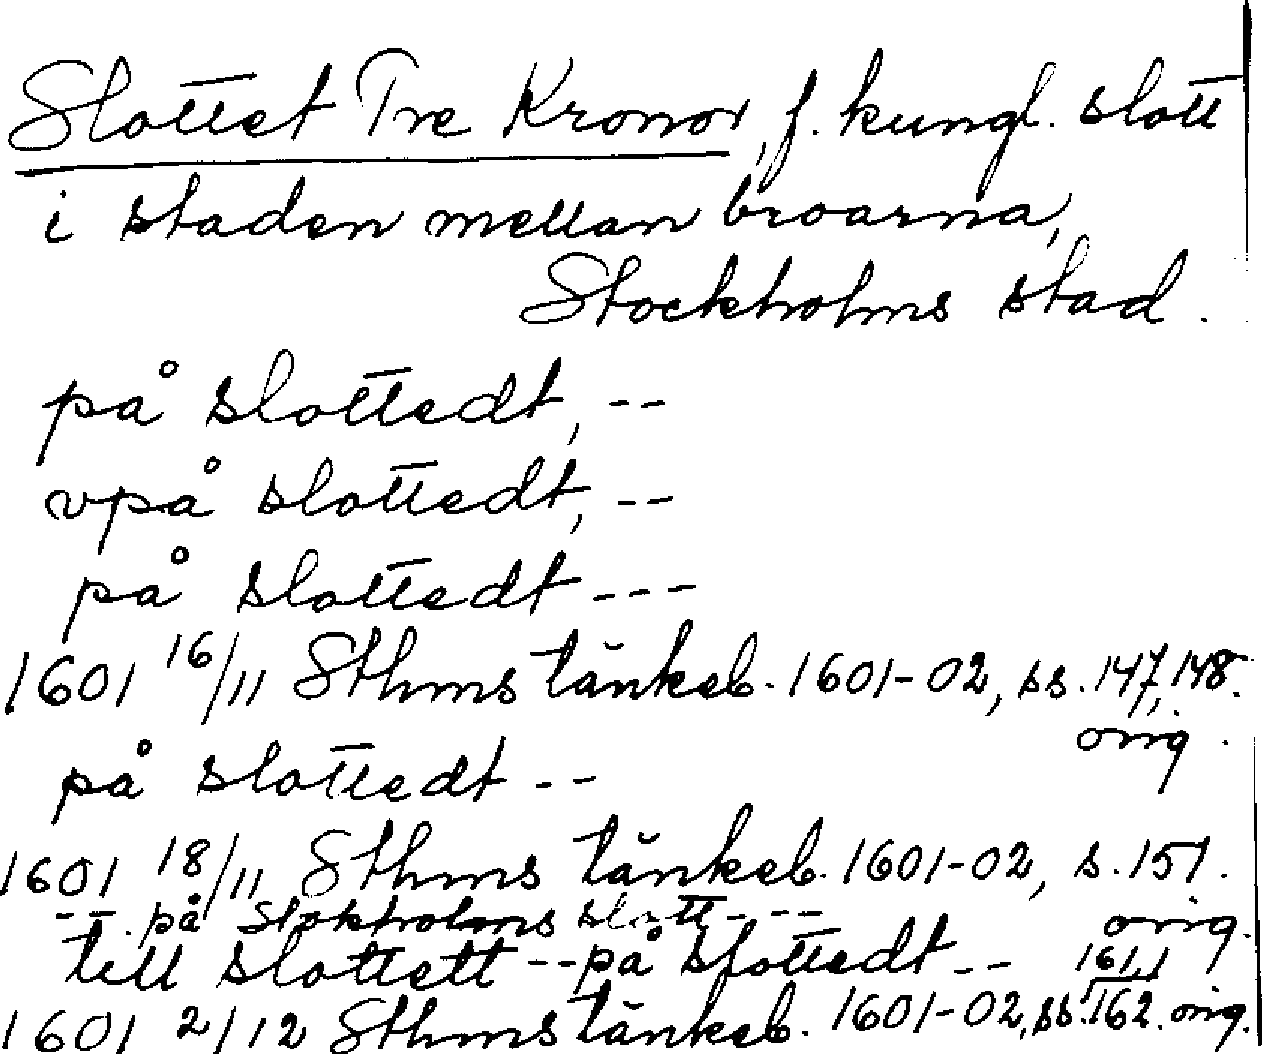 Slottet Tre Kronor, f. kungl. slott
i staden mellan broarna,
Stockholms stad.
på slottedt, --
vpå slottedt, --
på slottedt ---
1601 16/11 Sthms tänkeb. 1601-02, ss. 147, 148.
orig.
på slottedt --
1601 18/11 Sthms tänkeb. 1601-02, s. 151.
orig.
-- på Stokholms slott ---
till slottett -- på slottedt -- 161,
1601 2/12 Sthms tänkeb. 1601-02, ss. 162. orig.